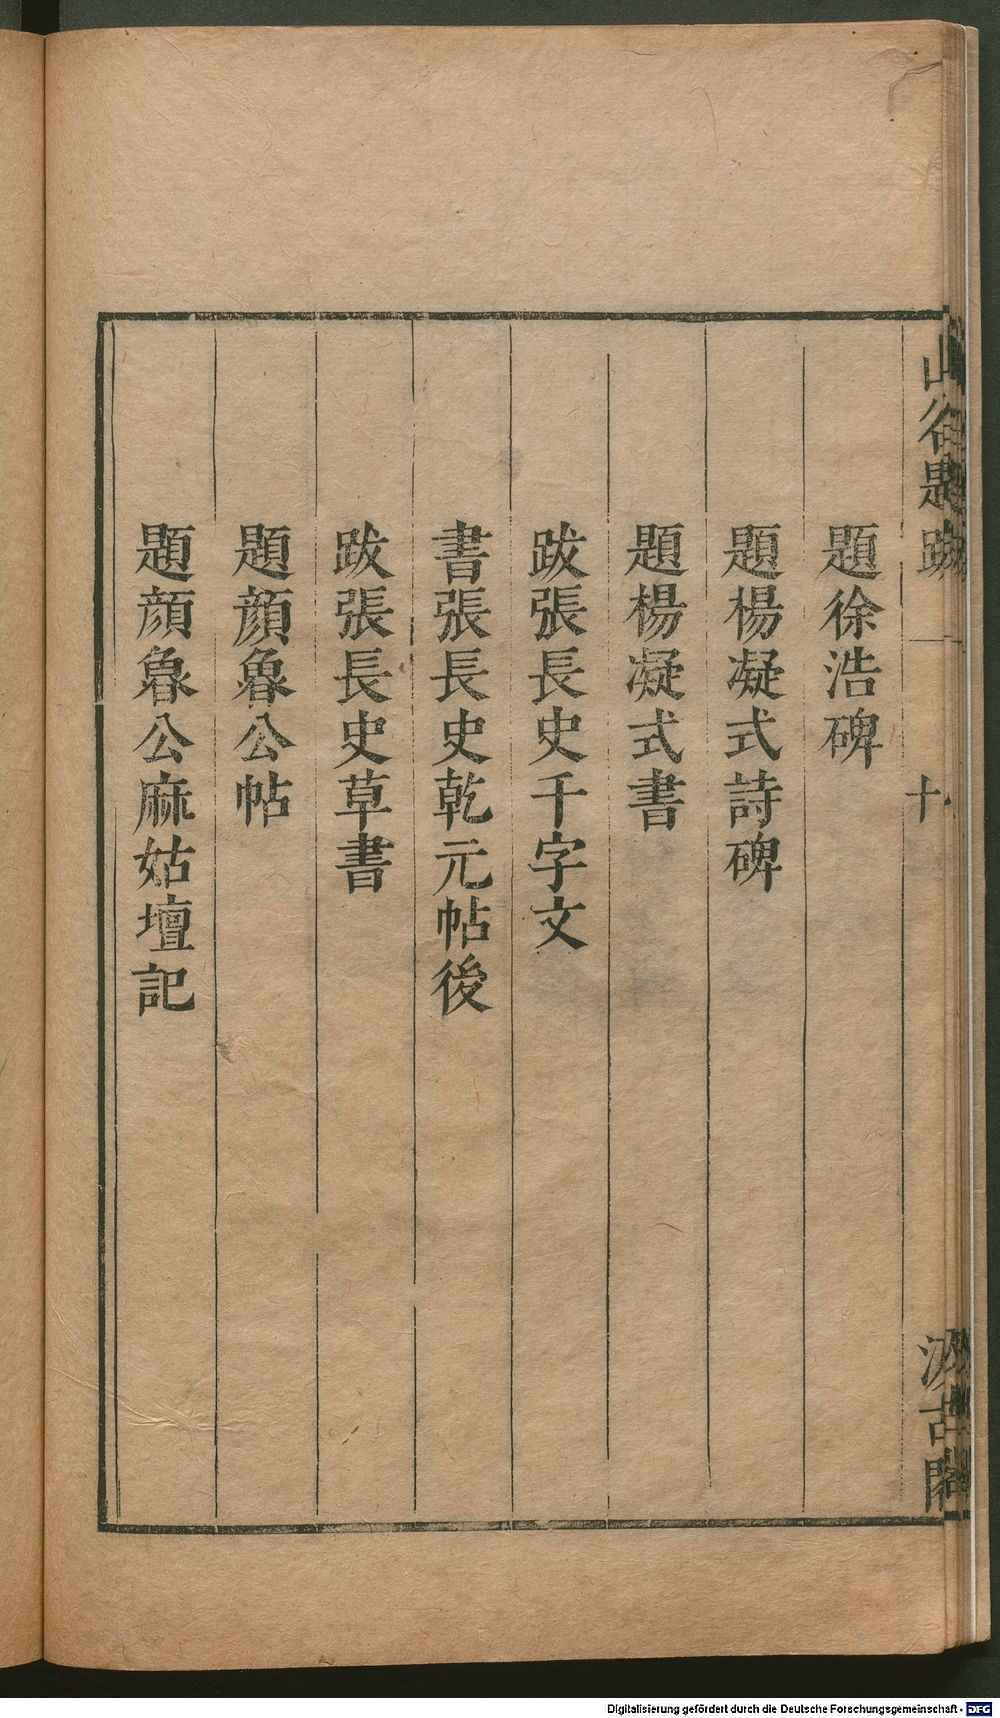 山谷題跋
十
汲古閣
題徐浩碑
題楊凝式詩碑
題楊凝式書
跋張長史千字文
書張長史乾元帖後
跋張長史草書
題顔魯公帖
題顔魯公麻姑壇記
Digitalisierung gefördert durch die Deutsche Forschungsgemeinschaft - DFG